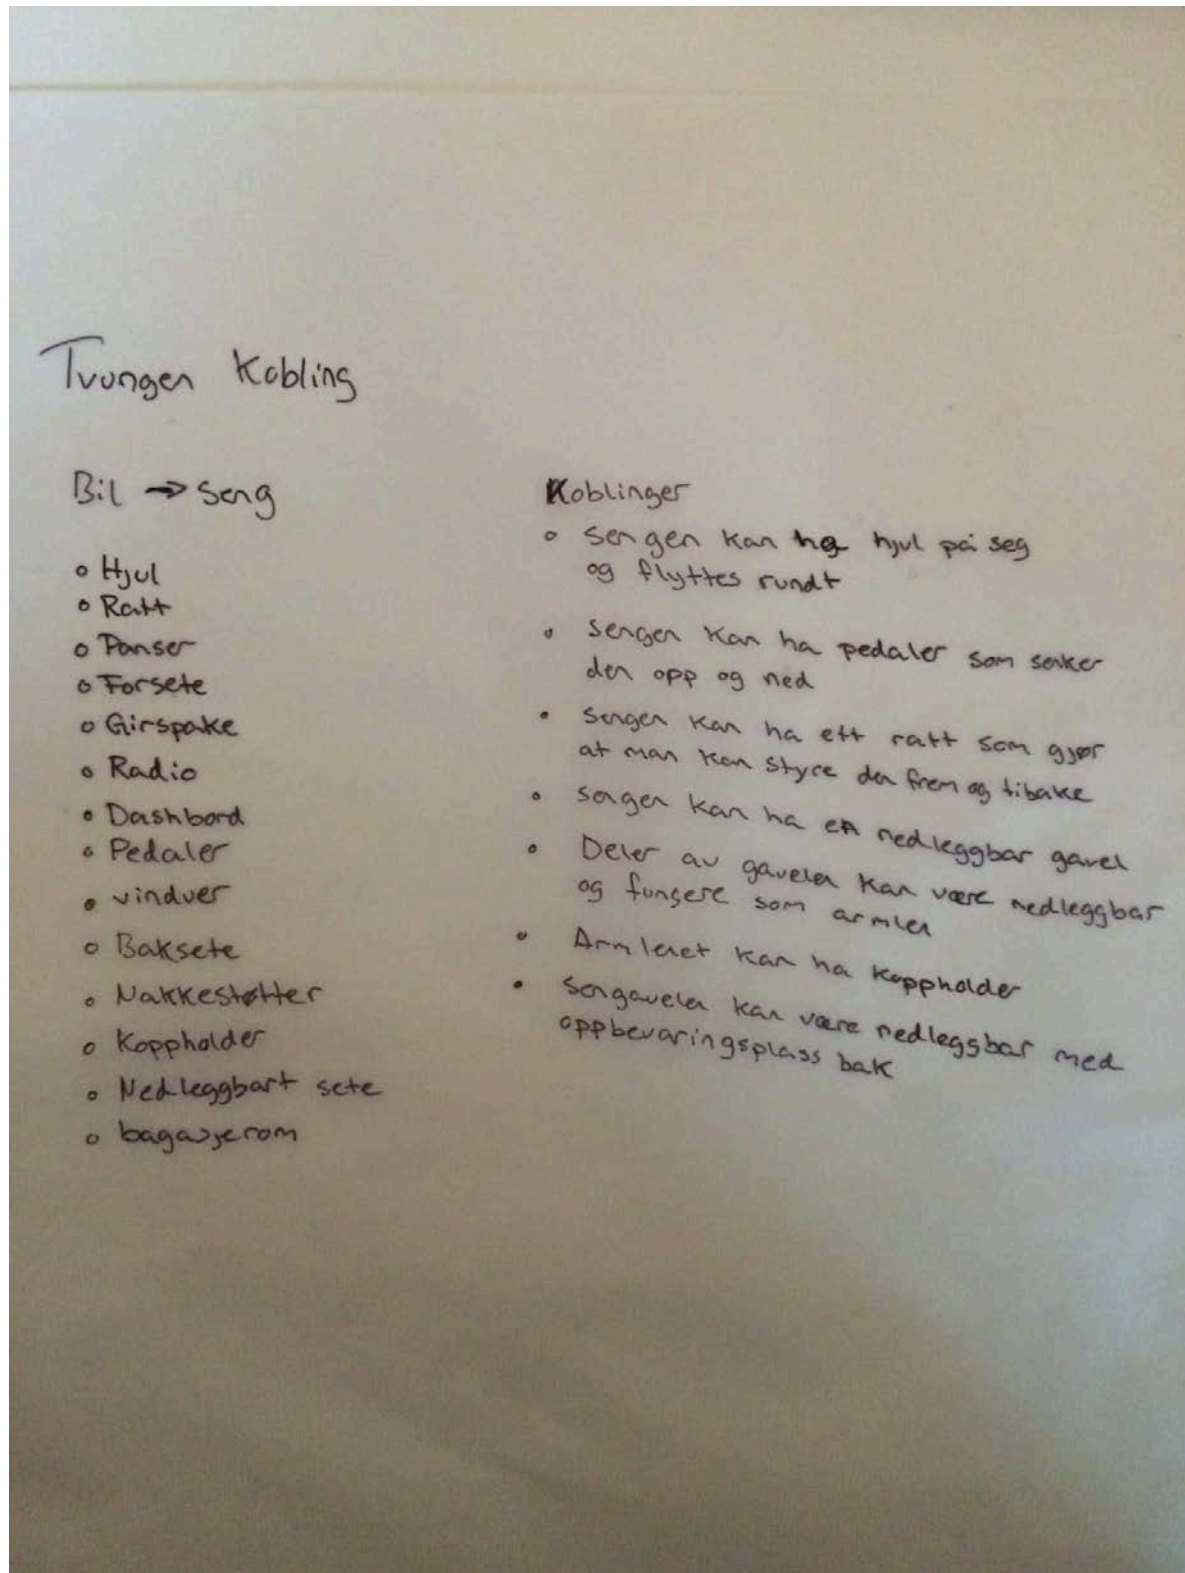 Tvungen Kobling
Bil → Seng
• Hjul
• Ratt
• Panser
• Forsete
• Girspake
• Radio
• Dashbord
• Pedaler
• vinduer
• Baksete
• Nakkestøtter
• Koppholder
• Nedleggbart sete
• bagasjerom
Koblinger
• Sengen kan ha hjul på seg
og flyttes rundt
• Sengen kan ha pedaler som senker
den opp og ned
• Sengen kan ha ett ratt som gjør
at man kan styre den frem og tibake
• Sengen kan ha en nedleggbar gavel
• Deler av gavelen kan være nedleggbar
og fungere som armlen
• Armlenet kan ha koppholder
• Sengavelen kan være nedleggbar med
oppbevaringsplass bak